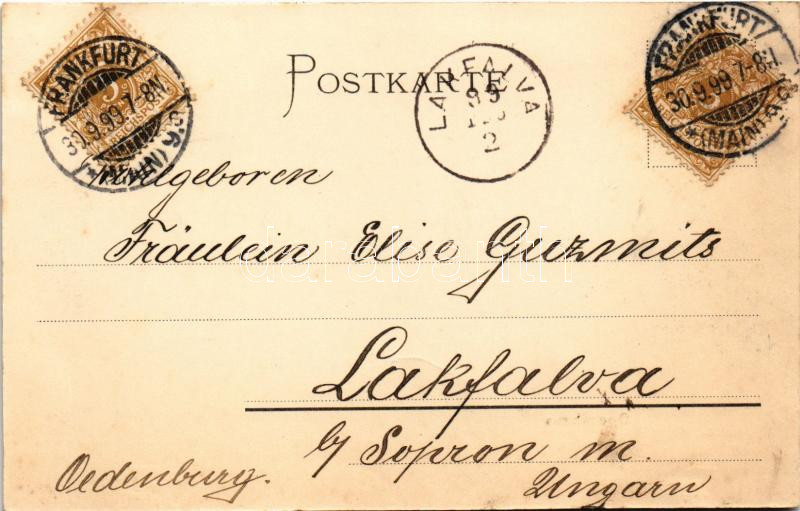 POSTKARTE
FRANKFURT
30.9.99.7-8N.
(MAIN)
LAKFALVA
99
2
FRANKFURT
30.9.99.7-8N.
(MAIN)
Wohlgeboren
Fräulein Elise Guzmits
darabanth
Lakfalva
b/ Sopron m.
Oedenburg.
Ungarn